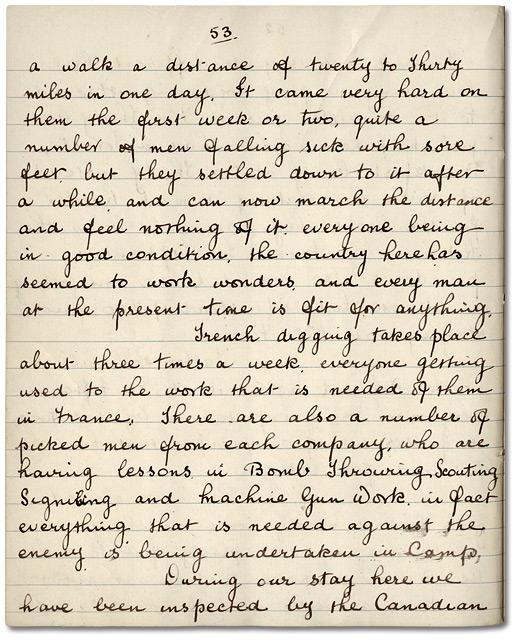 53.
a walk a distance of twenty to Thirty
miles in one day. It came very hard on
them the first week or two, quite a
number of men falling sick with sore
feet, but they settled down to it after
a while, and can now march the distance
and feel nothing of it. everyone being
in good condition, the country here has
seemed to work wonders, and every man
at the present time is fit for anything.
Trench digging takes place
about three times a week, everyone getting
used to the work that is needed of them
in France. There are also a number of
picked men from each company, who are
having lessons in Bomb Throwing, Scouting
Signaling and Machine Gun Work, in fact
everything that is needed against the
enemy is being undertaken in Camp.
During our stay here we
have been inspected by the Canadian